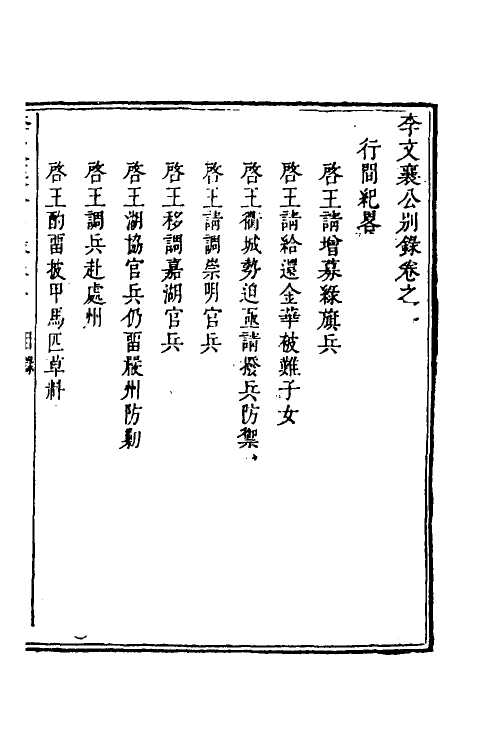 李文襄公別錄卷之一
行間紀畧
啓王請增募綠旗兵
啓王請給還金華被難子女
啓王衢城勢迫亟請撥兵防禦
啓王請調崇明官兵
啓王移調嘉湖官兵
啓王湖協官兵仍畱嚴州防勦
啓王調兵赴處州
啓王酌畱披甲馬匹草料
目錄